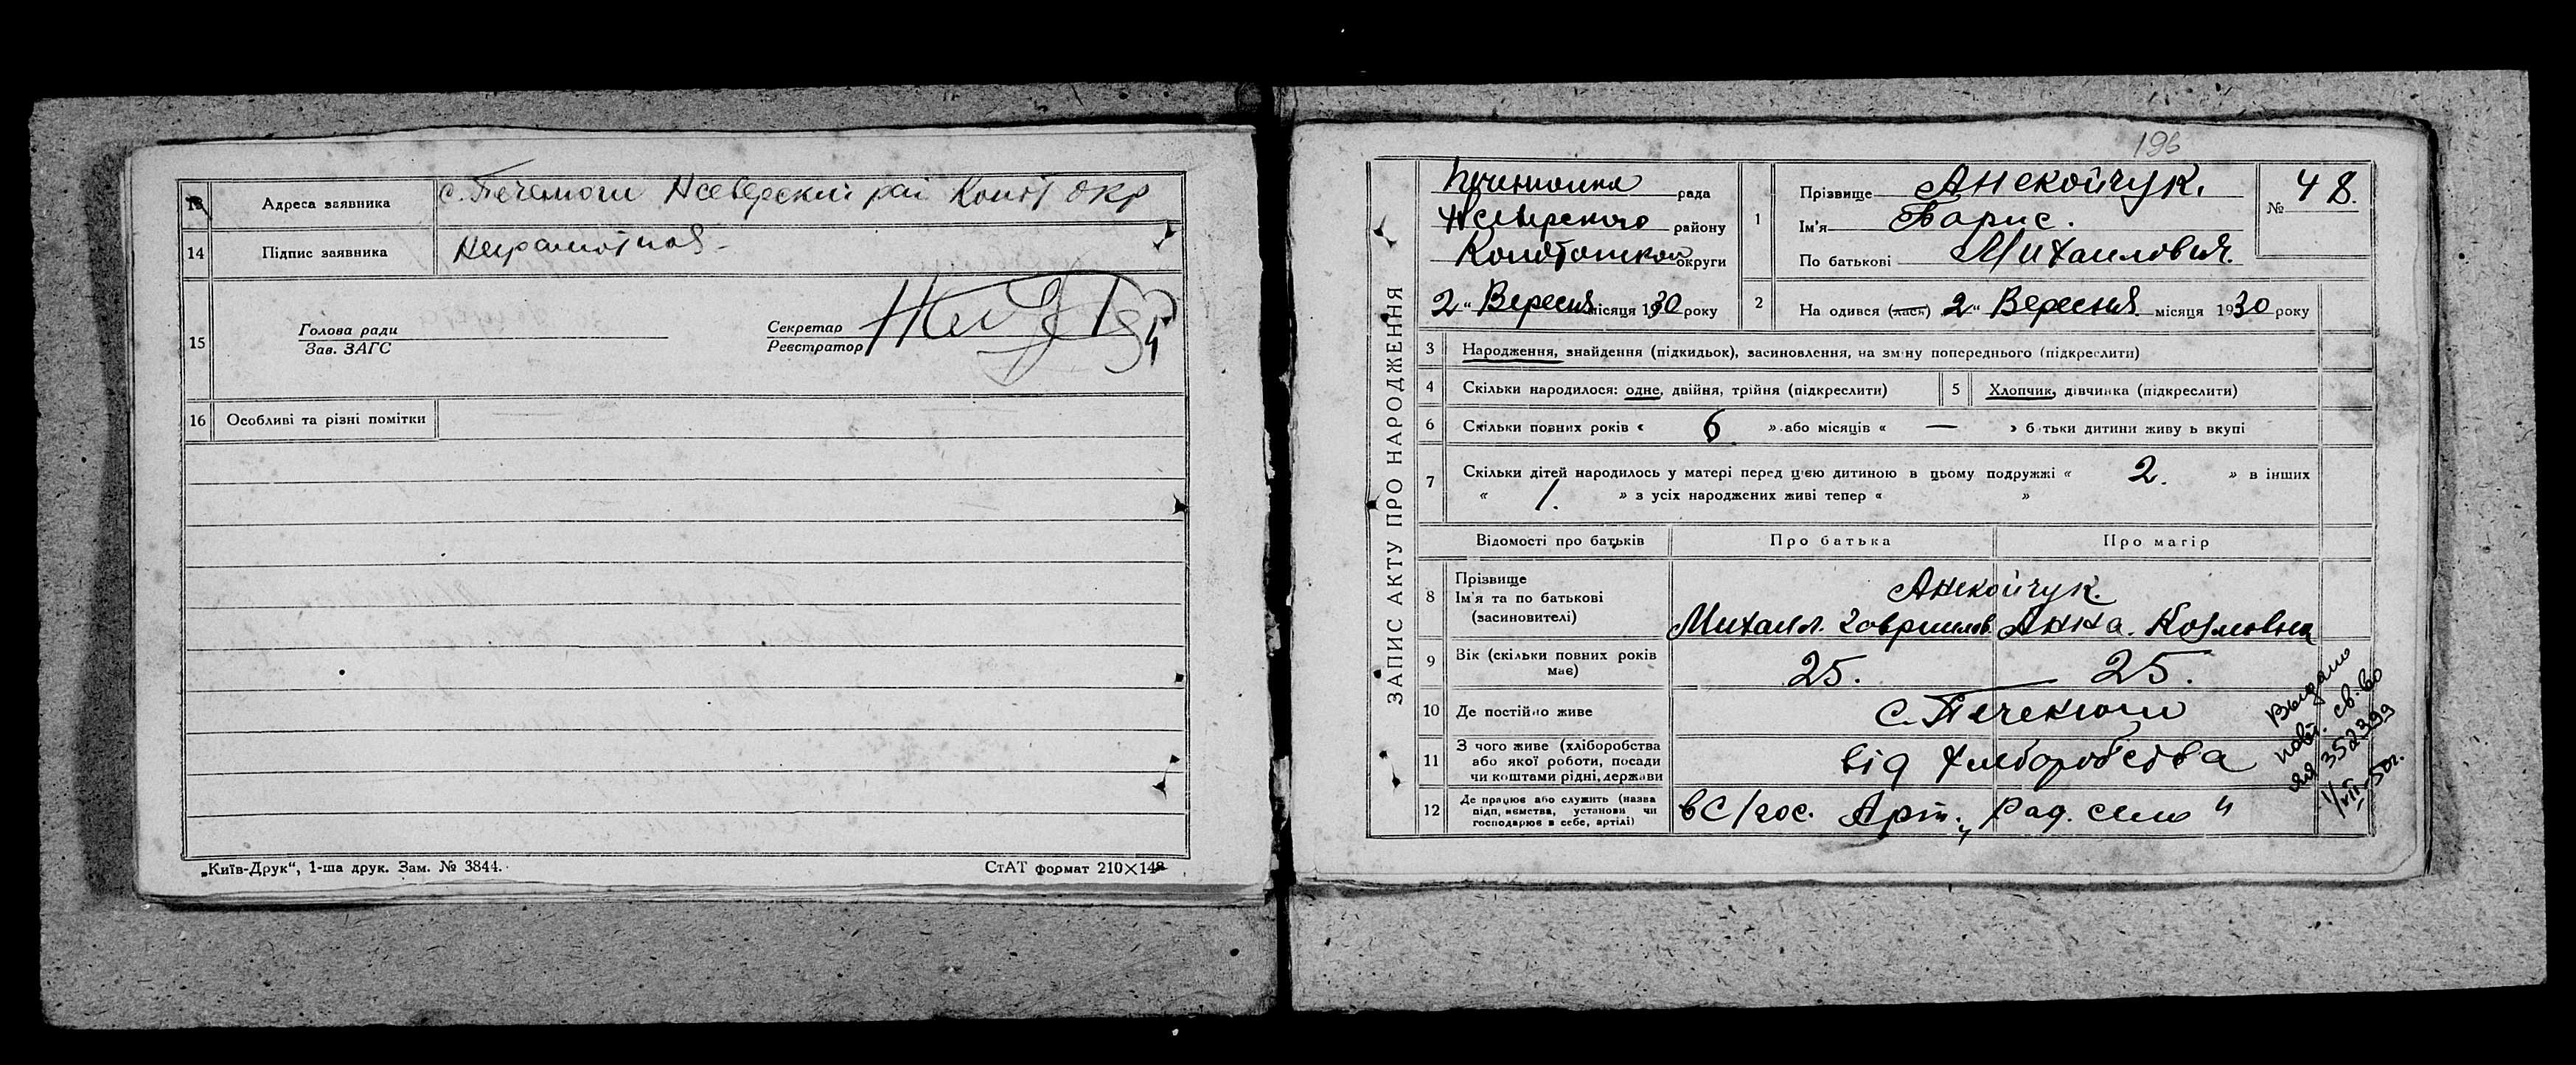 13 Адреса заявника с. Печенюги Нсеверский рай Коног окр
14 Підпис заявника Неграмотная -
15 Голова ради
Зав. ЗАГС
Секретар
Реєстратор
16 Особливі та різні помітки
„Київ-Друк“, 1-ша друк. Зам. № 3844.
СтАТ формат 210×148
196
ЗАПИС АКТУ ПРО НАРОДЖЕННЯ
рада
району
Конотопской округи
2 “ Вересня місяця 1930 року
1 Прізвище Анекойчук.
Ім'я Борис.
По батькові Михаилович.
№ 48.
2 На одився (лась) 2 “ Вересня місяця 1930 року
3 Народження, знайдення (підкидьок), засиновлення, на зміну попереднього (підкреслити)
4 Скільки народилося: одне, двійня, трійня (підкреслити)
5 Хлопчик, дівчинка (підкреслити)
6 Скільки повних років « 6 » або місяців « — » б тьки дитини живу ь вкупі
7 Скільки дітей народилось у матері перед цією дитиною в цьому подружжі « 2. » в інших
« 1. » з усіх народжених живі тепер « »
Відомості про батьків Про батька Про матір
8 Прізвище
Ім'я та по батькові
(засиновителі)
Анекойчук.
Михаил. Гаврилов. Анна. Козмовна
9 Вік (скільки повних років
має)
25. 25.
10 Де постійно живе с. Печенюги
11 З чого живе (хліборобства
або якої роботи, посади
чи коштами рідні, держави
від хліборобства
12 Де працює або служить (назва
підп,иємства, установи чи
господарює в себе, артілі)
в С/гос. Арт. „ Рад. село “
Выдано
повт. св-во
ЯЯ 352399
1/VII-50г.